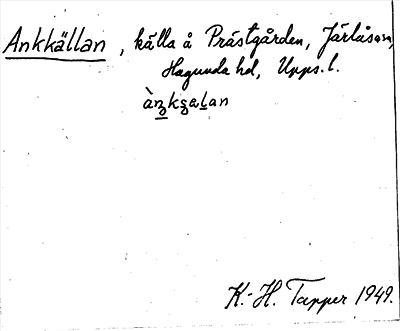 Ankkällan, källa å Prästgården, Järlåsa sn,
Hagunda hd, Upps. l.
K.-H. Tapper 1949.